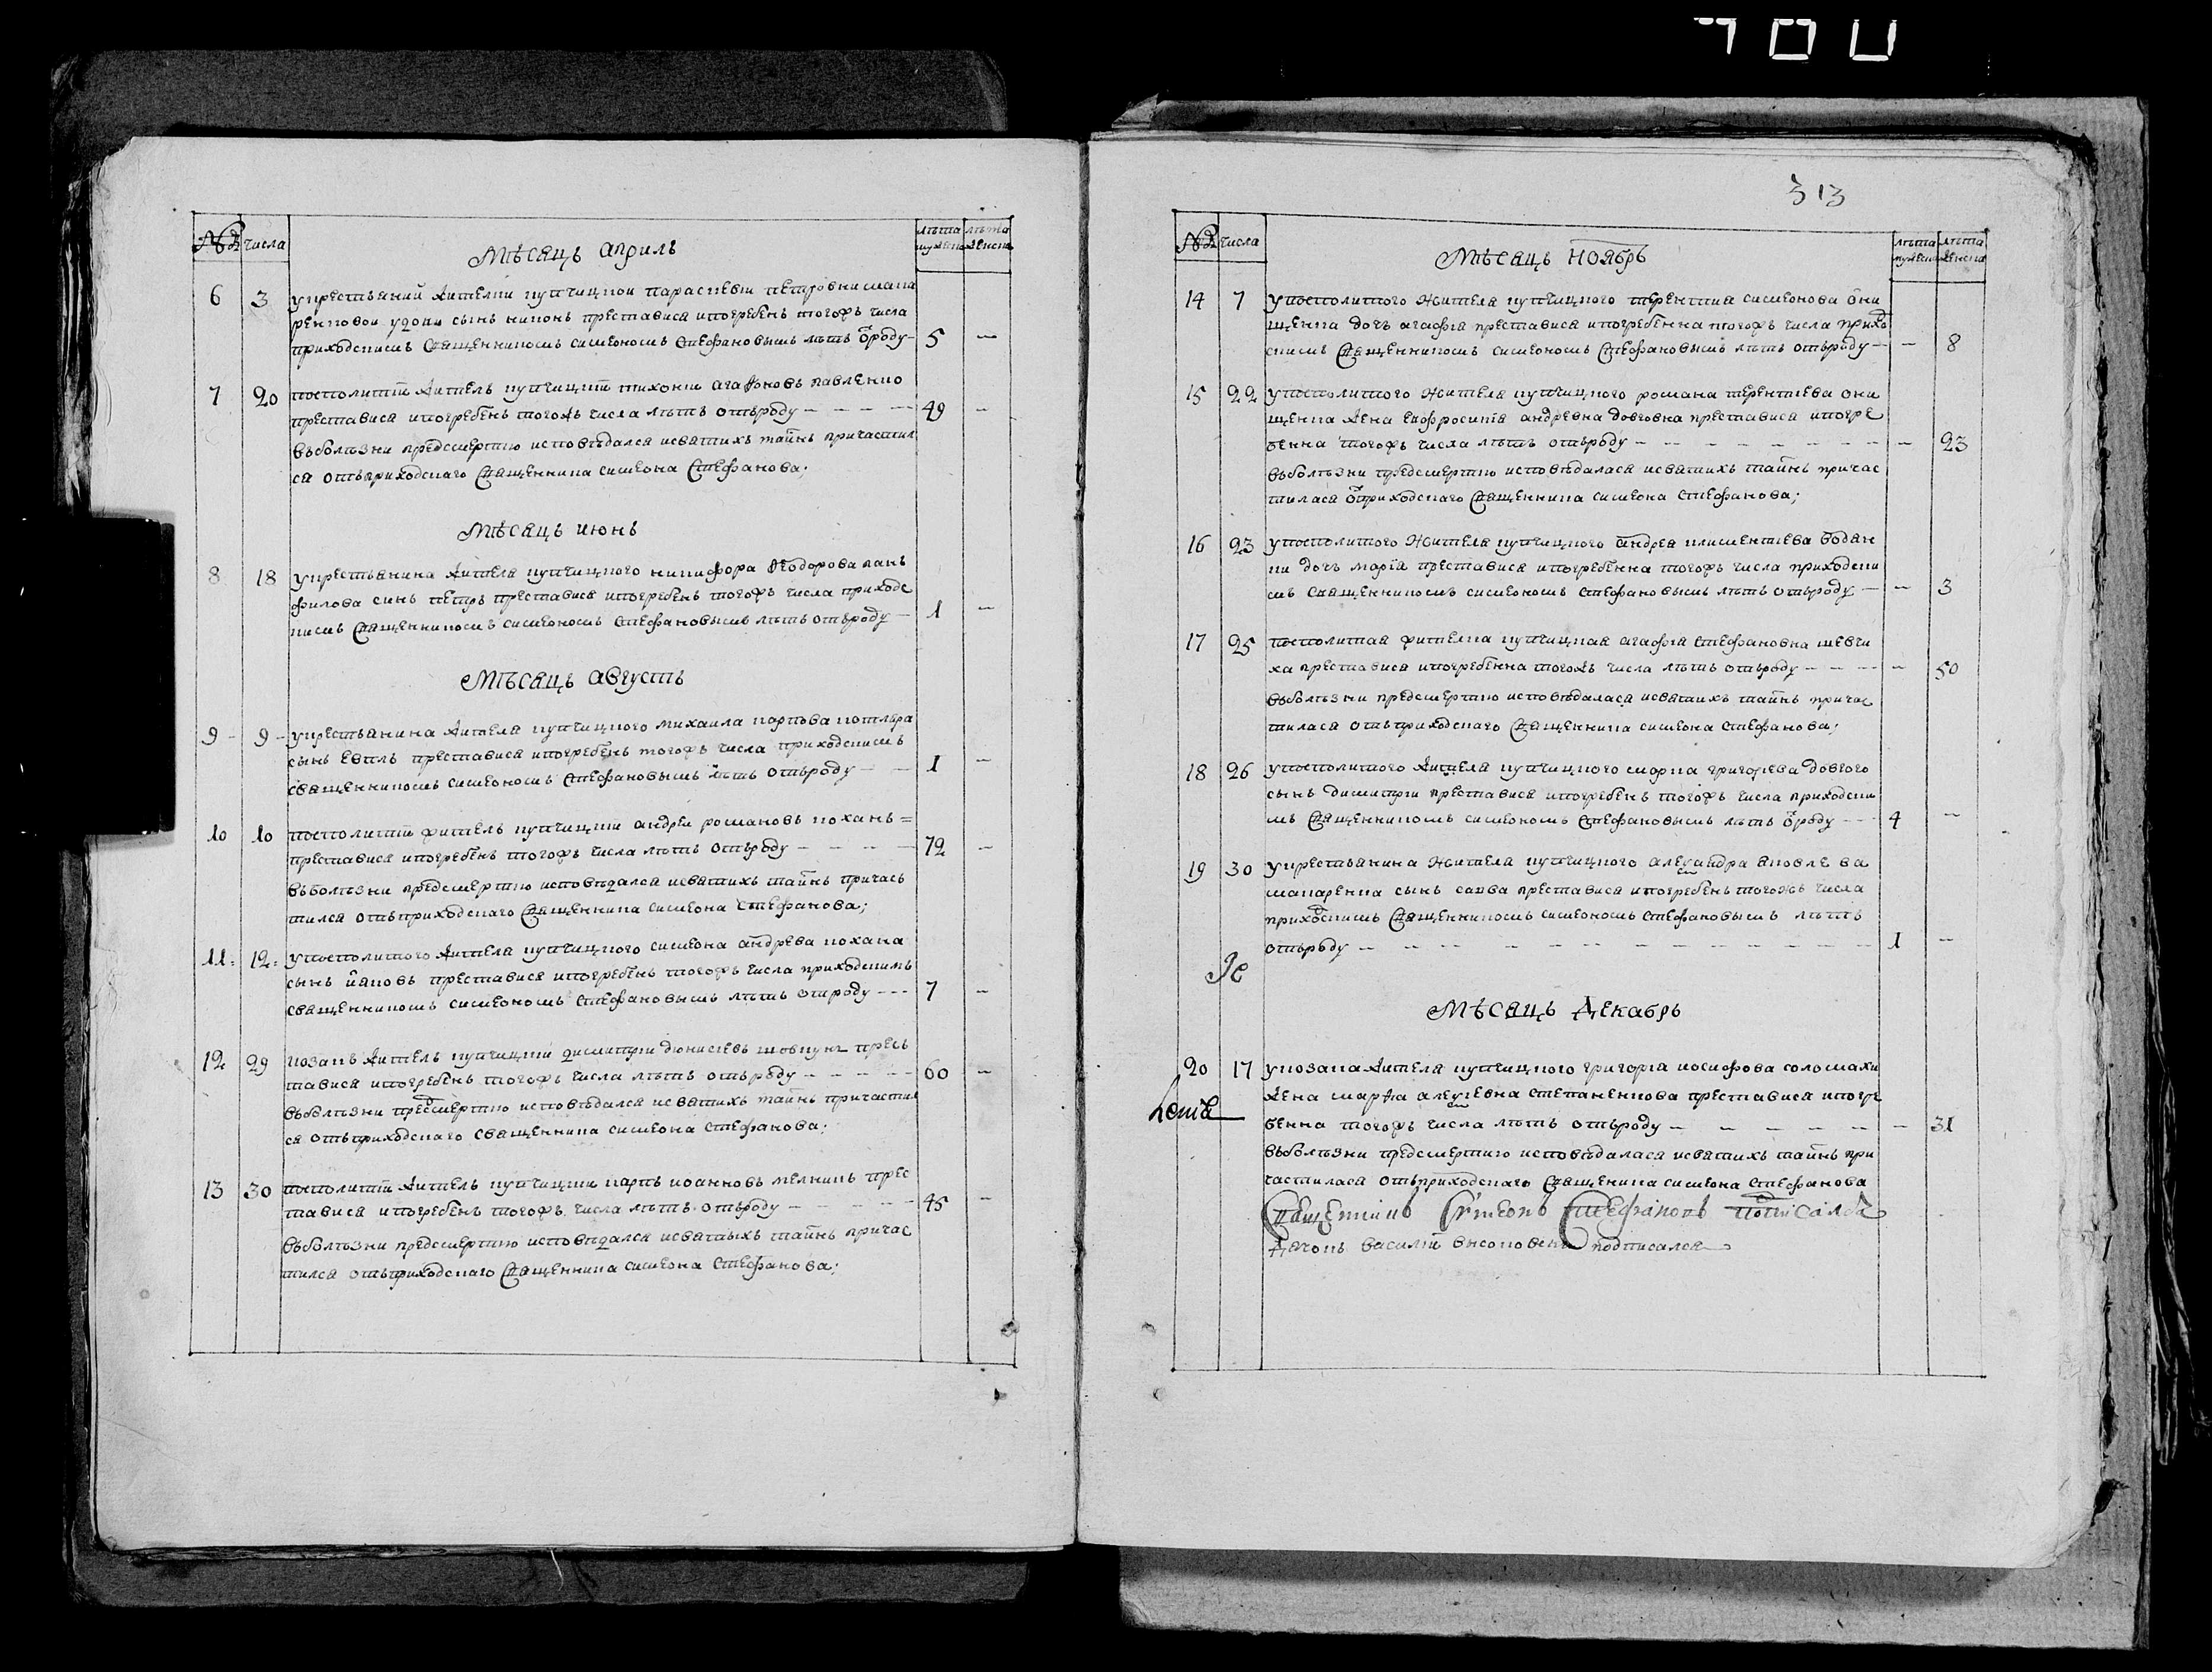 313
№ числа лѣта мужеска лѣта женска
Мѣсяцъ априль
6 3 укрестьянки жителки кутчицкои параскеви петровни мака
ренковои удови сынъ никонъ преставися ипогребенъ тогожъ числа
приходскимъ священникомъ симеономъ стефановымъ лѣтъ ѿроду 5 —
7 20 посполитій житель кутчицкій тихонъ агафоновъ павленко
преставися ипогребенъ тогожъ числа лѣтъ отъроду — — — — 49 —
въболѣзни предсмертію исповѣдался исвятихъ тайнъ причастил
ся отъприходскаго священника симеона стефанова;
Мѣсяцъ июнь
8 18 укрестьянина жителя кутчицкого никифора феодорова пань
филова синъ петръ преставися ипогребенъ тогожъ числа приходс
кимъ священникомъ симеономъ стефановымъ лѣтъ отъроду — 1 —
Мѣсяцъ августъ
9 — 9 — укрестьянина жителя кутчицкого михаила карпова котляра
сынъ евплъ преставися ипогребенъ тогожъ числа приходскимъ
священникомъ симеономъ стефановымъ лѣтъ отъроду — — 1 —
10 10 посполитій житель кутчицкій андрей романовъ коханъ =
преставися ипогребенъ тогожъ числа лѣтъ отъроду — — — — 72 —
въболѣзни предсмертію исповѣдался исвятихъ тайнъ причась
тился отъприходскаго священника симеона стефанова;
11: 12: упосполитого жителя кутчицкого симеона андрѣева кохана
сынъ іяковъ преставися ипогребенъ тогожъ числа приходскимъ
священникомъ симеономъ стефановымъ лѣтъ отроду — — — 7 —
12 29 козакъ житель кутчицкій димитрий дионисіевъ товкунъ пресь
тавися ипогребенъ тогожъ числа лѣтъ отъроду — — — — — 60 —
въболѣзни предсмертію исповѣдался исвятихъ тайнъ причастил
ся отъприходскаго священника симеона стефанова;
13 30 посполитій житель кутчицкій карпъ иоанновъ мелникъ прес
тавися ипогребенъ тогожъ числа лѣтъ отъроду — — — — — 45 —
въболѣзни предсмертію исповѣдался исвятыхъ тайнъ причас
тился отъприходскаго священника симеона стефанова;
№ числа лѣта мужеска лѣта женска
Мѣсяцъ ноябрь
14 7 упосполитого жителя кутчицкого терентия симеонова они
щенка дочъ агафія преставися ипогребенна тогожъ числа прихо
скимъ священникомъ симеономъ стефановымъ лѣтъ отъроду — — 8
15 22 упосполитого жителя кутчицкого романа терентиева они
щенка жена евфросинія андревна довговна преставися ипогре
бенна тогожъ числа лѣтъ отъроду — — — — — — — — — 23
въболѣзни предсмертію исповѣдалася исвятихъ тайнъ причас
тилася ѿприходскаго священника симеона стефанова;
16 23 упосполитого жителя кутчицкого андрея климентиева бодян
ки дочъ марія преставися ипогребенна тогожъ числа приходски
мъ священникомъ симеономъ стефановымъ лѣтъ отъроду — — 3
17 25 посполитая жителка кутчицкая агафія стефановна шевчи
ха преставися ипогребенна тогожъ числа лѣтъ отъроду — — — — 50
въболѣзни предсмертію исповѣдалася исвятихъ тайнъ причас
тилася отъприходскаго священника симеона стефанова;
18 26 упосполитого жителя кутчицкого марка григорева довгого
сынъ димитрий преставися ипогребенъ тогожъ числа приходски
мъ священникомъ симеономъ стефановымъ лѣтъ ѿроду — — — 4 —
19 30 укрестьянина жителя кутчицкого алеѯандра яковлева
макаренка сынъ савва преставися ипогребенъ тогожъ числа
приходскимъ священникомъ симеономъ стефановымъ лѣтъ
отъроду — — — — — — — — — — — — — 1 —
Мѣсяцъ Декабрь
20 17 укозака жителя кутчицкого григорія иосифова соломахи
жена марфа алеѯіевна степаненкова преставися ипогре
бенна тогожъ числа лѣтъ отъроду — — — — — — — 31
въболѣзни предсмертию исповѣдалася исвятихъ тайнъ при
частилася отъприходскаго священика симеона стефанова
Священникъ Сімеонъ Стефановъ подписался
Дячокъ василій висоповень подписался